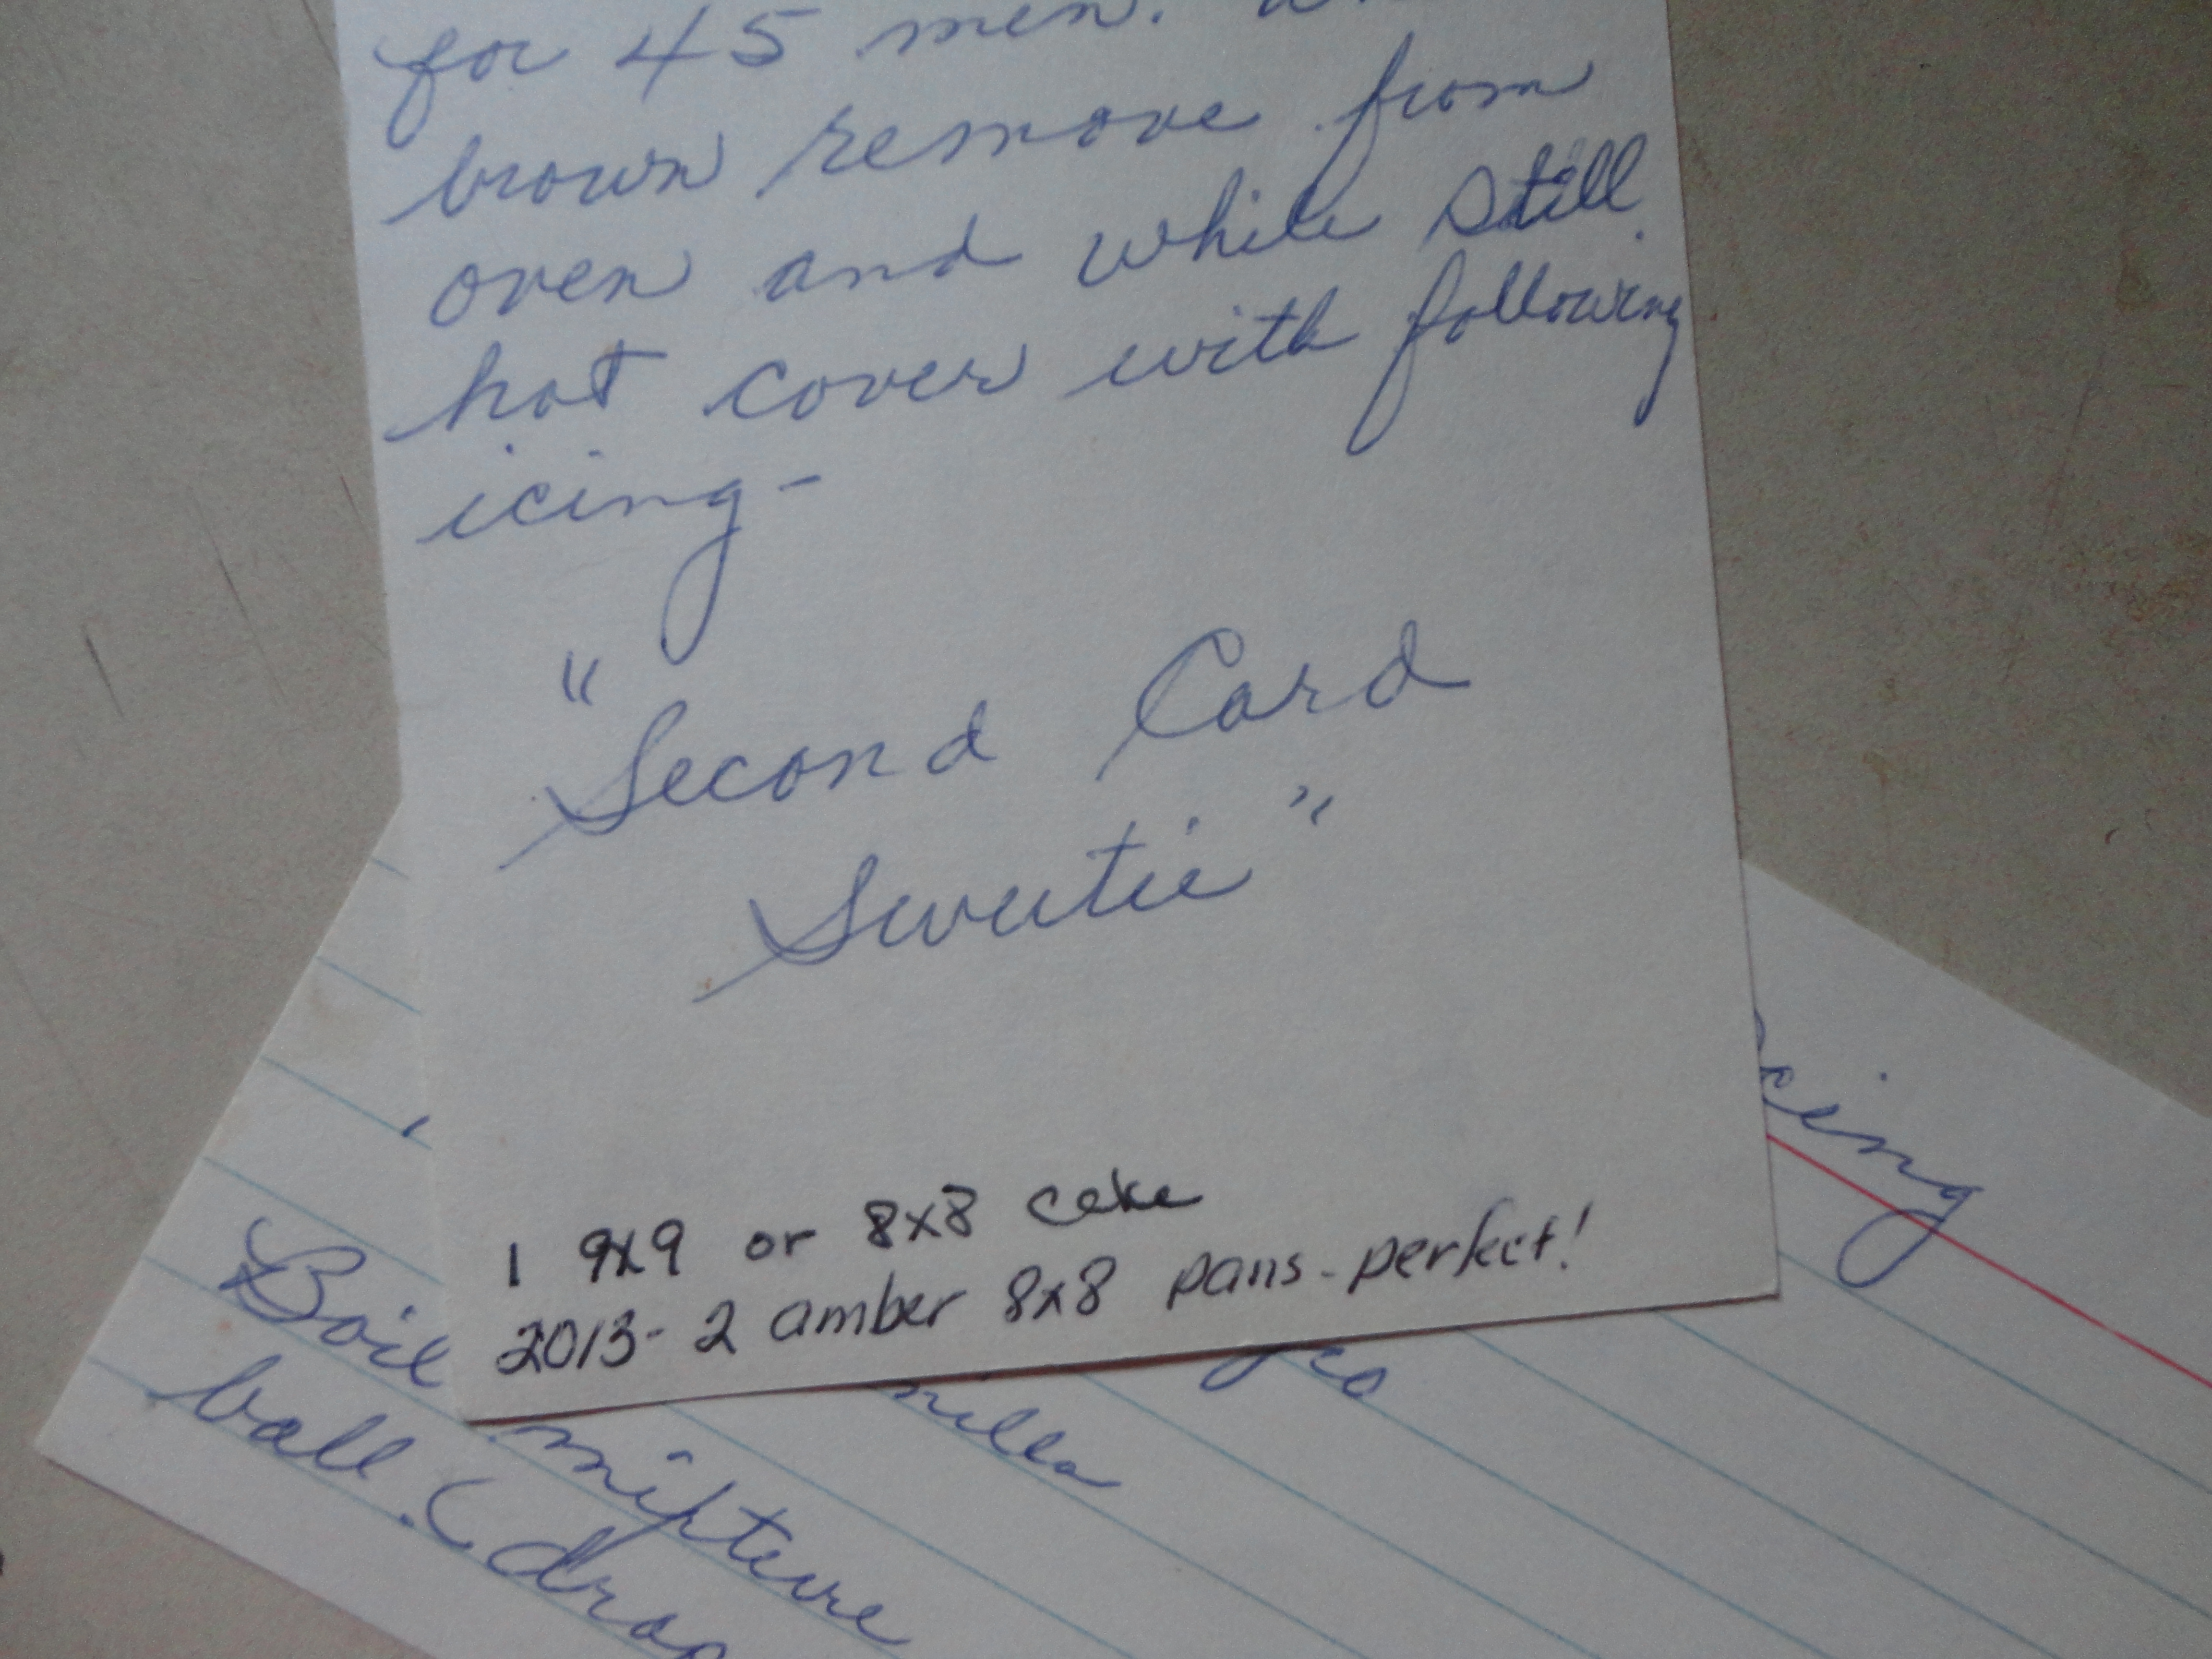 for 45 men.
brown remove from
oven and while still
hot cover with following
icing-
"Second Card
Sweetie"
1 9x9 or 8x8 cake
2013- 2 amber 8x8 pans - perfect!
Boil mixture
ball. (drop